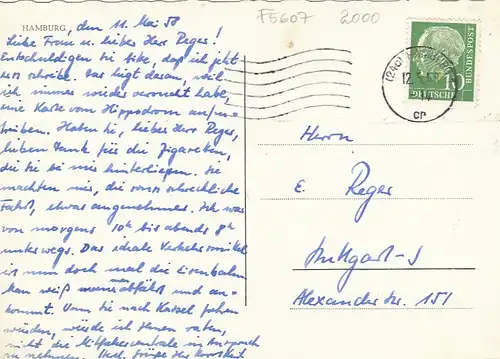 HAMBURG, den 11. Mai 58
F5607 2000
Liebe Frau u. lieber Herr Reger!
Entschuldigen Sie bitte, daß ich jetzt
erst schreibe. Das liegt daran, weil
ich immer wieder versucht habe,
eine Karte vom Hippodrom aufzu=
treiben. Haben Sie, lieber Herr Reger,
lieben Dank für die Zigaretten,
die Sie bei mir hinterließen. Sie
machten mir, die sonst schreckliche
Fahrt, etwas angenehmer. Ich war
von morgens 10h bis abends 8h
unterwegs. Das ideale Verkehrsmittel
ist nun doch mal die Eisenbahn
kan weiß wann abfährt und an-
kommt. Wenn Sie nach Kassel fahren
würden, würde ich Ihnen raten,
nicht die Mitfahrzentrale in Anspruch
zu nehmen. Grüße
DEUTSCHE
BUNDESPOST
10
cp
Herrn
E. Reger
Stuttgart-S
Alexander Str. 151